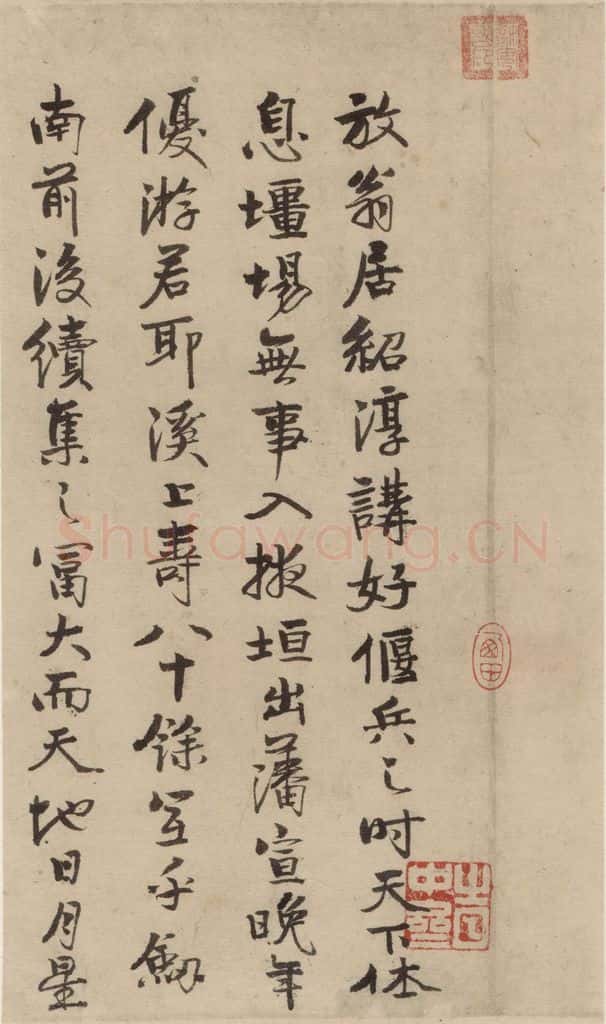 放翁居紹淳講好偃兵之时天下休
息壃場無事入掖垣出藩宣晚年
優游若耶溪上壽八十餘宜乎劔
南前後續集之富大而天地日月星
Shufawang.CN